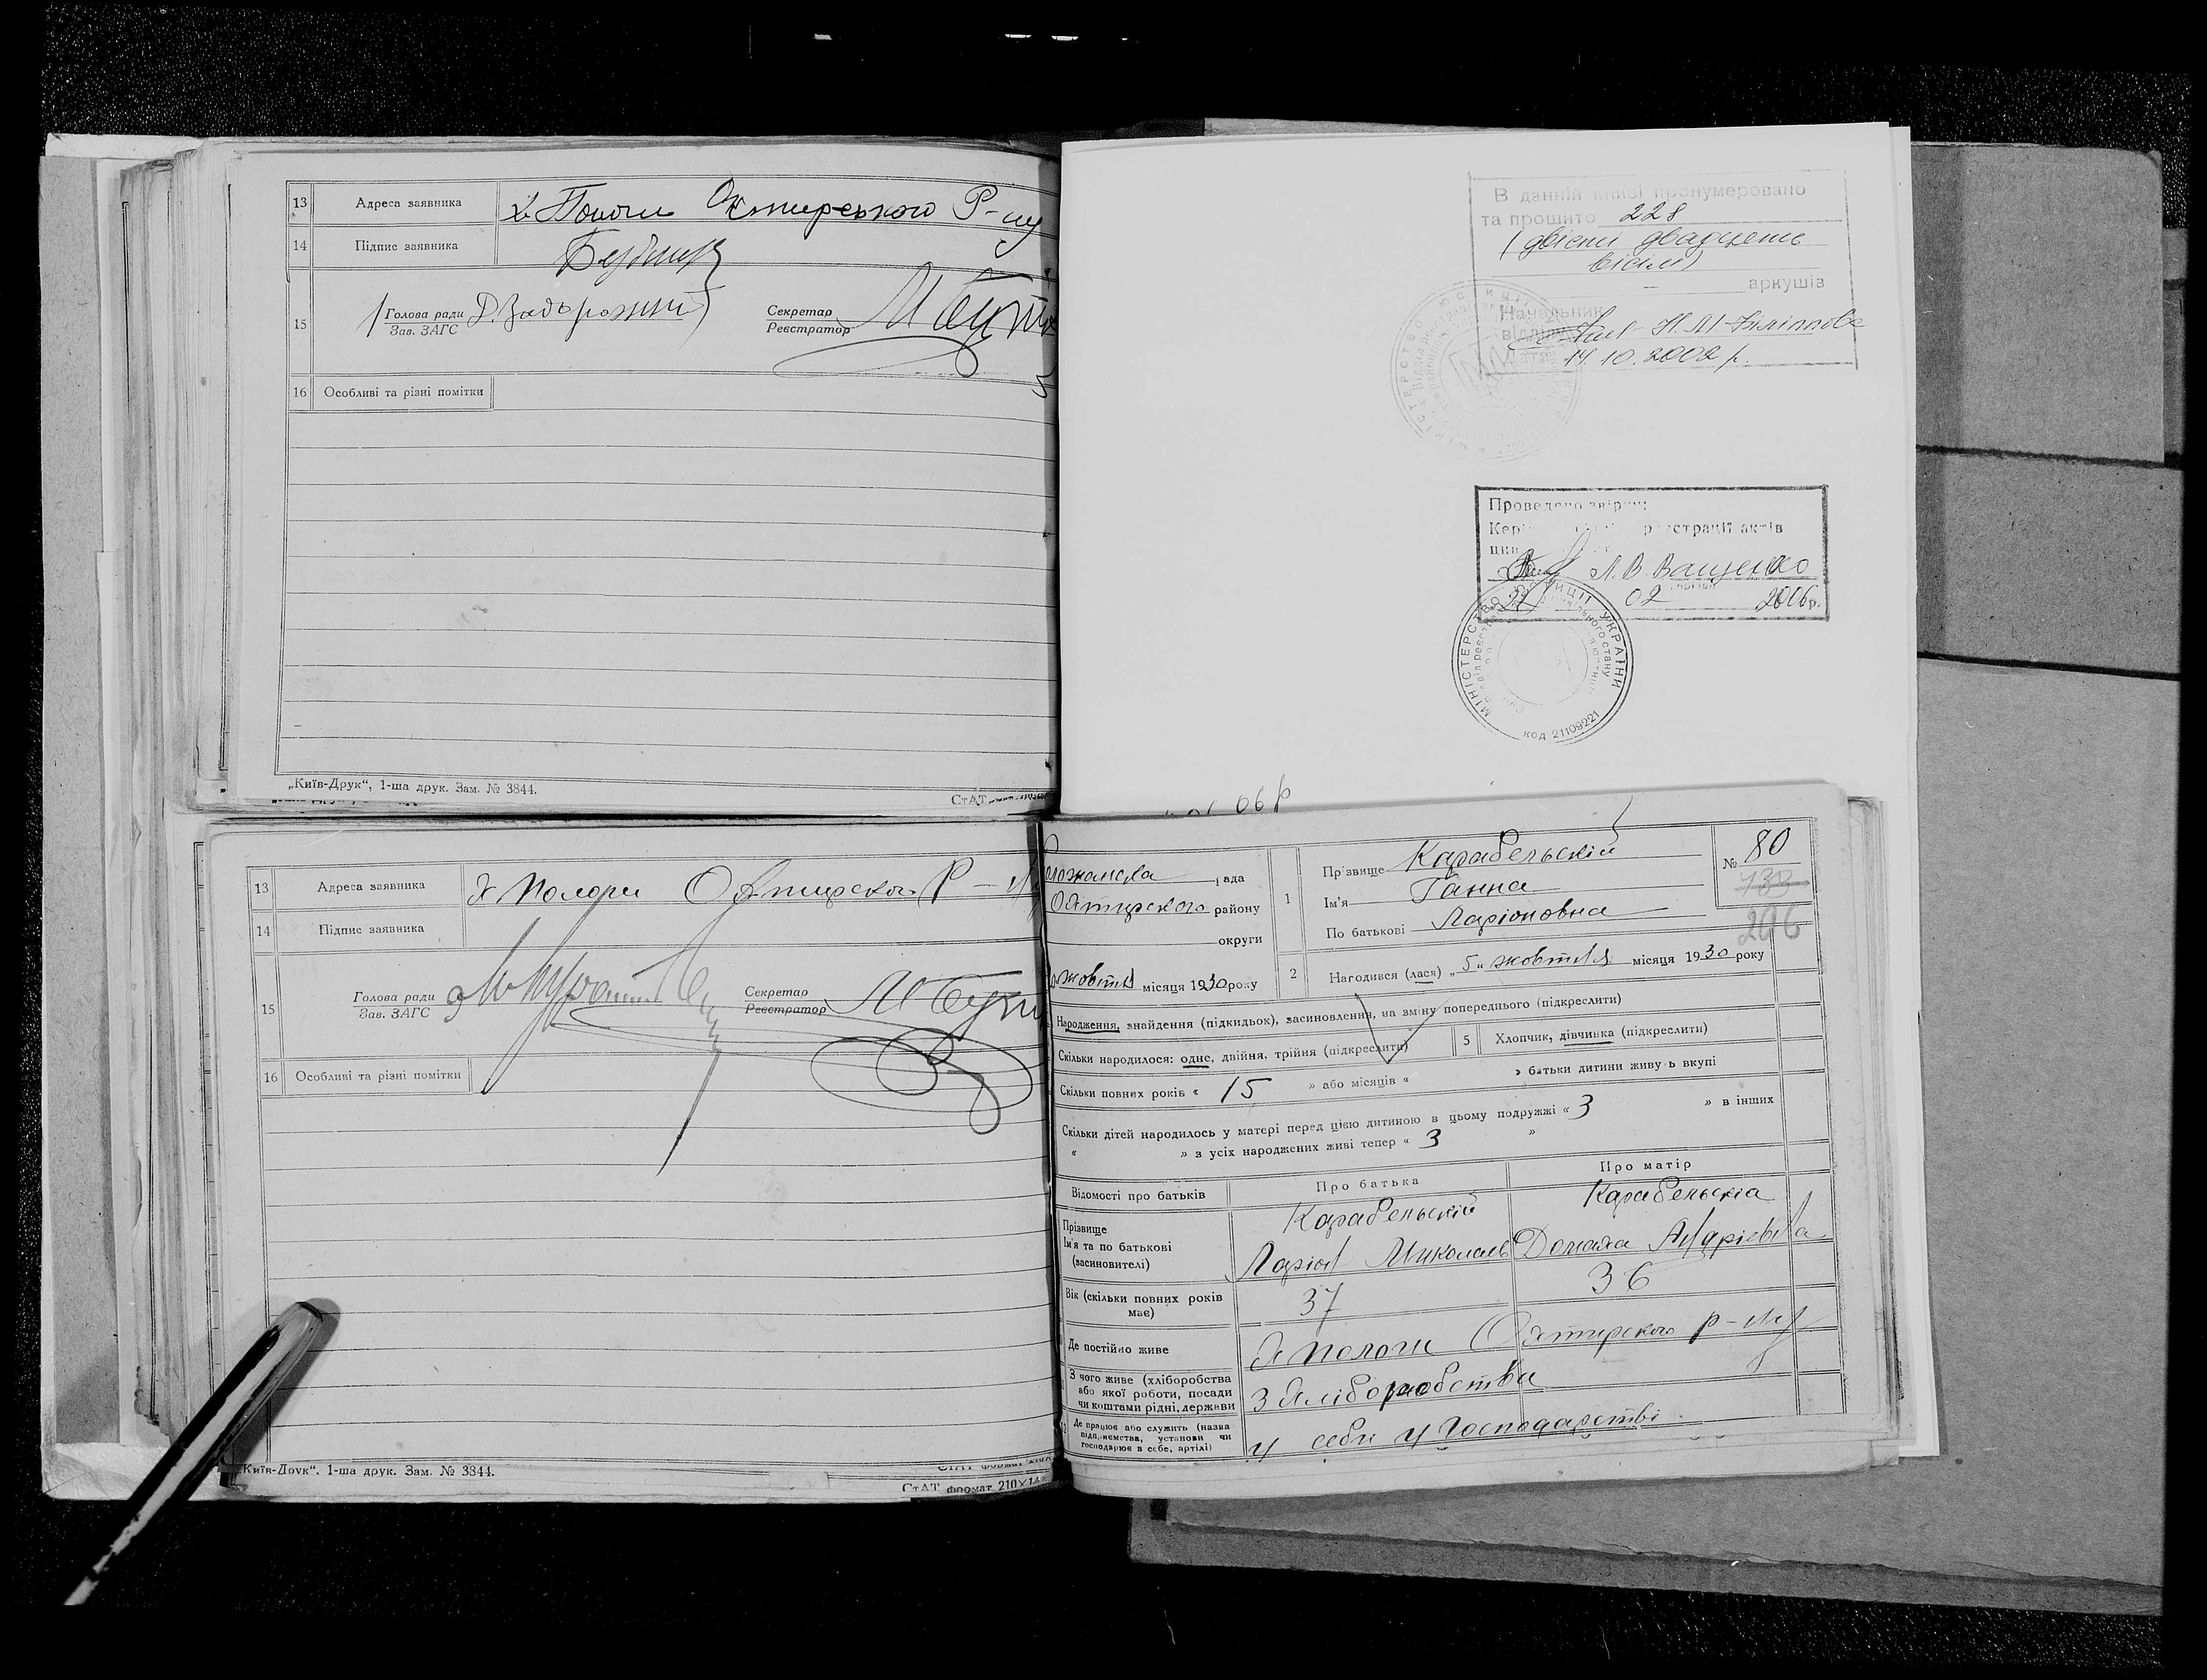 13 Адреса заявника х Пологи Охтирського Р-ну
14 Підпис заявника
15 Голова ради Д. Задорожній Секретар
Зав. ЗАГС Реєстратор
16 Особливі та різні помітки
„Київ-Друк“, 1-ша друк. Зам. № 3844.
СтАТ
В данній книзі пронумеровано
та прошито 228
(двісті двадцять
вісім)
аркушів
Начальник
відділу Н.М.
14.10.2002 р.
Проведено звірку:
реєстрації актів
Л.В. Ващенко
02 2006р.
МІНІСТЕРСТВО ЮСТИЦІЇ УКРАЇНИ
код 21109221
06 р
13 Адреса заявника х Пологи Охтирского Р-ну
14 Підпис заявника
15 Голова ради Секретар
Зав. ЗАГС Реєстратор
16 Особливі та різні помітки
„Київ-Друк“, 1-ша друк. Зам. № 3844.
СтАТ формат 210×14
рада
Охтирского району
округи
жовтня місяця 1930 року
1 Прізвище Карабельскій
Ім'я Ганна
По батькові Ларіоновна
№ 80
133
206
2 Народився (лася) „5“ жовтня місяця 1930 року
Народження, знайдення (підкидьок), засиновлення, на зміну попереднього (підкреслити)
Скільки народилося: одне, двійня, трійня (підкреслити) 5 Хлопчик, дівчинка (підкреслити)
Скільки повних років « 15 » або місяців « » батьки дитини живуть вкупі
Скільки дітей народилось у матері перед цією дитиною в цьому подружжі « 3 » в інших
« » з усіх народжених живі тепер « 3 »
Відомості про батьків Про батька Про матір
Прізвище Карабельскій Карабельскіа
Ім'я та по батькові Ларіон Миколаев Домаха Андріевна
(засиновителі)
Вік (скільки повних років має) 37 36
Де постійно живе х Пологи Охтирского р-ну
З чого живе (хліборобства
або якої роботи, посади
чи коштами рідні, держави З хліборобства
Де працює або служить (назва
підприємства, установи чи
господарює в себе, артілі) у себе у Господарстві